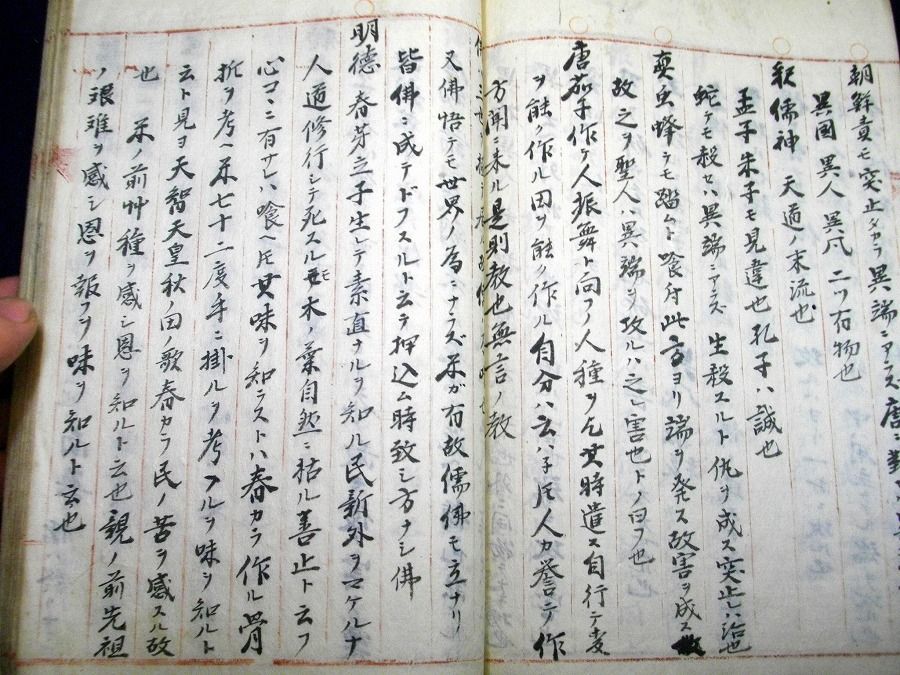 朝鮮責モ突止タカラ異端ニアラズ唐ニ
異国 異人 異風 二ツ有物也
釈儒神 天道ノ末流也
孟子朱子モ見違也孔子ハ誠也
蛇ケモ殺セハ異端ニアラズ 生殺スルト仇ヲ成ス突止レハ治也
虫蜂テモ踏ムト喰付此方ヨリ端ヲ発ス故害ヲ成ス
故之ヲ聖人ハ異端ヲ攻ルハ之レ害也トノ曰フ也
唐茄子作ケ人振舞ト向フノ人種ヲ乞其時遣ス自行テ麦
ヲ能ク作ル田ヲ能ク作ル自分ハ云ハ子尺人カ誉テ作
方聞ニ来ル是則教也無言ノ教
又佛悟テモ世界ノ為ニナラズ米ガ有故儒佛モ立ナリ
皆佛ニ成テドフスルト云テ押込ム時致シ方ナシ佛
明徳 春芽立子生レテ素直ナルヲ知ル民新外ヲマケルナ
人道修行シテ死スル草木ノ葉自然ニ枯ル善止ト云フ
心コヽニ有サレハ喰ヘ尺其味ヲ知ラストハ春カラ作ル骨
折ヲ考ヘ米七十二度手ニ掛ルヲ考フルヲ味ヲ知ルト
云ト見ヲ天智天皇秋ノ田ノ歌春カラ民ノ苦ヲ感スル故
也 米ノ前艸種ヲ感シ恩ヲ知ルト云也親ノ前先祖
ノ艱難ヲ感シ恩ヲ報フヲ味ヲ知ルト云也